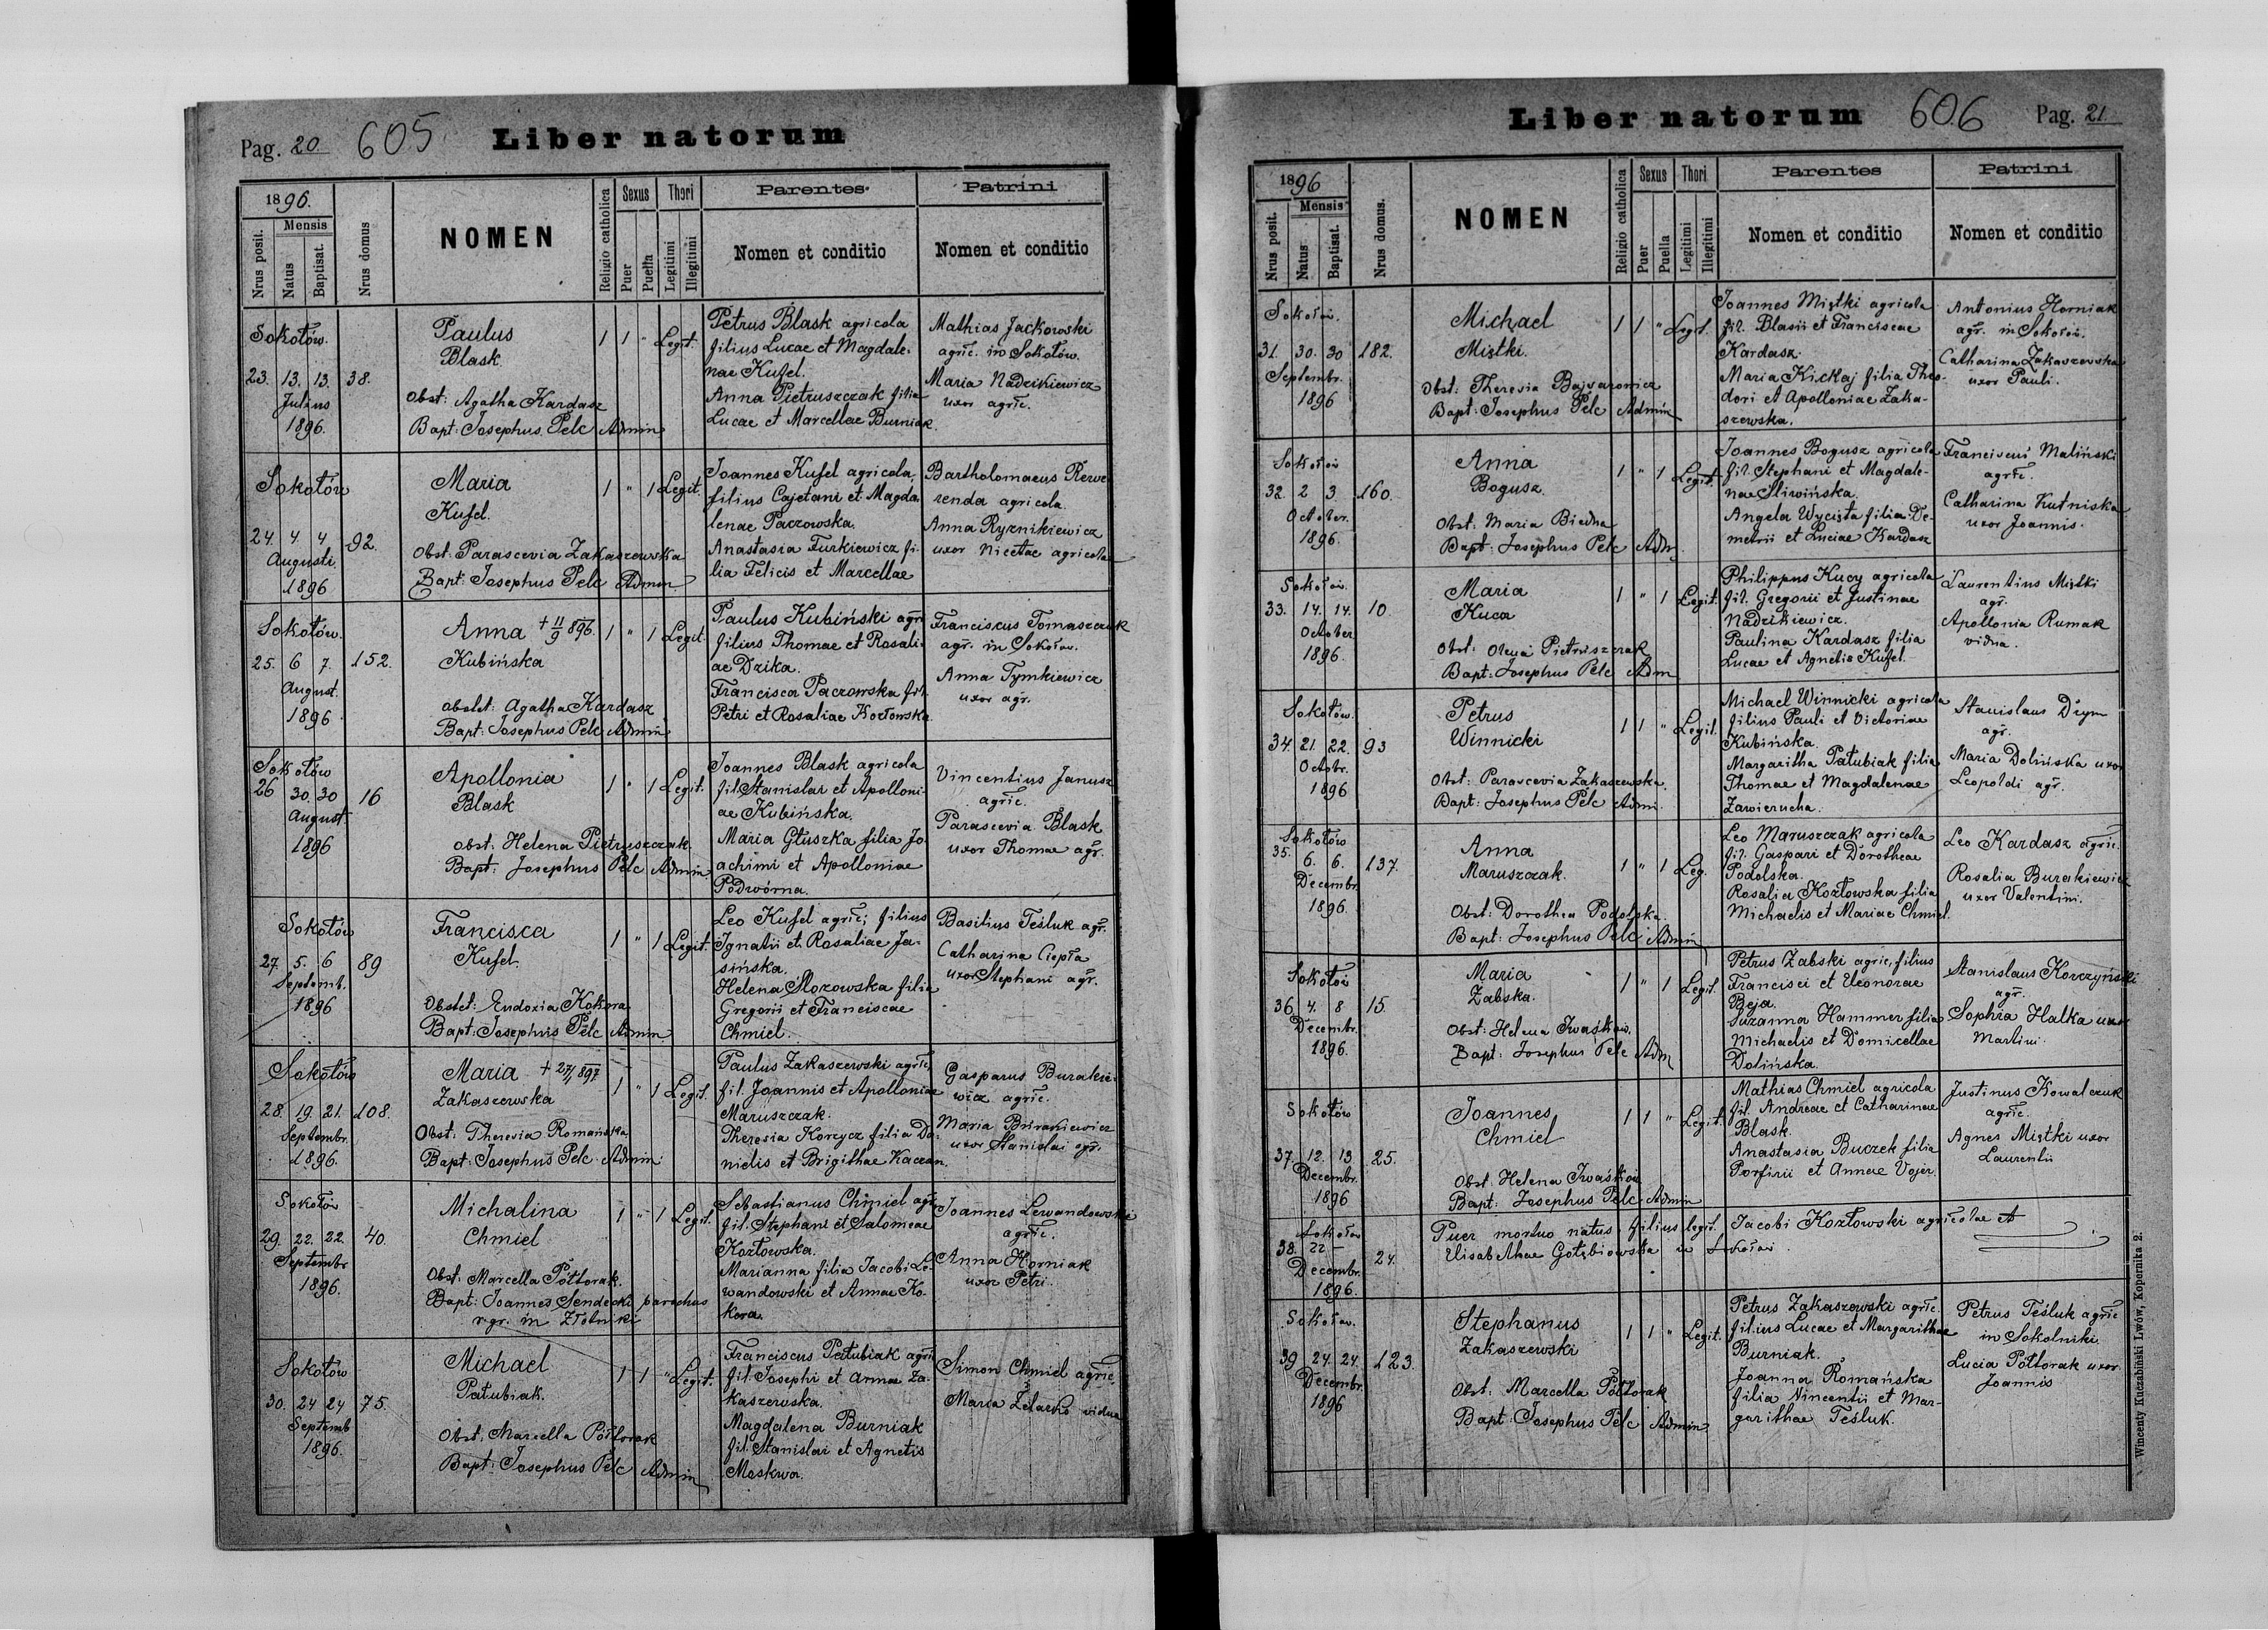 Pag. 20 605 Liber natorum
1896.
Nrus posit.
Mensis
Natus
Baptisat.
Nrus domus
NOMEN
Religio catholica
Sexus
Puer
Puella
Thori
Legitimi
Illegitimi
Parentes
Nomen et conditio
Patrini
Nomen et conditio
Sokołów.
23. 13. 13. 38.
Julius
1896.
Paulus
Blask
Obst: Agatha Kardasz
Bapt: Josephus Pelc Admin
1 1 " Legit.
Petrus Blask agricola
filius Lucae et Magdale-
nae Kufel.
Anna Pietruszczak filia
Lucae et Marcellae Burniak.
Mathias Jackowski
agric. in Sokołów.
Maria Nadzikiewicz
uxor agric.
Sokołów
24. 4 4 92.
Augusti.
1896
Maria
Kufel.
Obst: Parascevia Zakaszewska
Bapt: Josephus Pelc Admin
1 " 1 Legit.
Joannes Kufel agricola,
filius Cajetani et Magda-
lenae Paczowska.
Anastasia Furkiewicz fi-
lia Felicis et Marcellae
Bartholomaeus Rewe-
renda agricola.
Anna Ryznikiewicz
uxor Nicetae agricola
Sokołów.
25. 6 7. 152.
August.
1896.
Anna + 11/9 896.
Kubińska
obstet: Agatha Kardasz
Bapt: Josephus Pelc Admin
1 " 1 Legit.
Paulus Kubiński agr.
filius Thomae et Rosali-
ae Dzika.
Francisca Paczowska fil.
Petri et Rosaliae Kozłowska
Franciscus Tomaszczuk
agr. in Sokołów.
Anna Tymkiewicz
uxor agr.
Sokołów
26 30. 30 16
August.
1896
Apollonia
Blask
obst: Helena Pietruszczak.
Bapt: Josephus Pelc Admin
1 " 1 Legit.
Joannes Blask agricola
fil. Stanislai et Apolloni-
ae Kubińska.
Maria Głuszka filia Jo-
achimi et Apolloniae
Podwórna.
Vincentius Janusz
agric.
Parascevia Blask
uxor Thomae agr.
Sokołów
27. 5. 6 89
Septemb.
1896
Francisca
Kufel.
Obstet: Eudoxia Kokora
Bapt: Josephus Pelc Admin
1 " 1 Legit.
Leo Kufel agric; filius
Ignatii et Rosaliae Ja-
sińska.
Helena Morowska filia
Gregorii et Franciscae
Chmiel.
Basilius Teśluk agr.
Catharina Ciepła
uxor Stephani agr.
Sokołów
28. 19. 21. 108.
Septembr.
1896.
Maria + 27/1 897
Zakaszewska
Obst: Theresia Romańska
Bapt: Josephus Pelc Admin
1 " 1 Legit.
Paulus Zakaszewski agric,
fil. Joannis et Apolloniae
Maruszczak.
Theresia Korcycz filia Da-
nielis et Brigithae Kaczan.
Gasparus Burakie-
wicz agric.
Maria Burakiewicz
uxor Stanislai agr.
Sokołów
29. 22. 22. 40.
Septembr
1896.
Michalina
Chmiel
Obst: Marcella Półtorak.
Bapt: Joannes Sendecki parochus
r.gr. in Złotniki
1 " 1 Legit.
Sebastianus Chmiel agr.
fil. Stephani et Salomeae
Kozłowska.
Marianna filia Jacobi Le-
wandowski et Annae Ko-
kora.
Joannes Lewandowski
agric.
Anna Horniak
uxor Petri.
Sokołów
30. 24 24 75.
Septemb
1896.
Michael
Patubiak.
Obst. Marcella Półtorak
Bapt: Josephus Pelc Admin
1 1 " Legit.
Franciscus Patubiak agric
fil. Josephi et Anna Za-
kaszewska.
Magdalena Burniak
fil. Stanislai et Agnetis
Moskwa.
Simon Chmiel agric.
Maria vidua
Liber natorum 606 Pag. 21
1896
Nrus posit.
Mensis
Natus
Baptisat.
Nrus domus.
NOMEN
Religio catholica
Sexus
Puer
Puella
Thori
Legitimi
Illegitimi
Parentes
Nomen et conditio
Patrini
Nomen et conditio
Sokołów.
31. 30. 30 182.
Septembr.
1896
Michael
Miątki.
Obst: Theresia Bajwarowicz
Bapt: Josephus Pelc Admin
1 1 " Legit.
Joannes Miątki agricola
fil. Blasii et Franciscae
Kardasz.
Maria Kickaj filia Theo-
dori et Apolloniae Zaka-
szewska.
Antonius Horniak
agr. in Sokołów.
Catharina Zakaszewska
uxor Pauli.
Sokołów
32. 2 3 160.
October.
1896.
Anna
Bogusz.
Obst: Maria Biedna
Bapt: Josephus Pelc Adm.
1 " 1 Legit.
Joannes Bogusz agricola
fil. Stephani et Magdale-
nae Śliwińska.
Angela Wycięta filia De-
metrii et Luciae Kardasz
Franciscus Maliński
agric.
Catharina Kutniska
uxor Joannis.
Sokołów.
33. 14. 14. 10.
October
1896.
Maria
Kuca
Obst: Olena Pietruszczak
Bapt: Josephus Pelc Adm
1 " 1 Legit.
Philippus Kucy agricola
fil. Gregorii et Justinae
Nadzikiewicz.
Paulina Kardasz filia
Lucae et Agnetis Kufel.
Laurentius Miątki
agr.
Apollonia Rumak
vidua.
Sokołów.
34. 21. 22. 93
Octobr.
1896
Petrus
Winnicki
Obst: Parascevia Zakaszewska.
Bapt: Josephus Pelc Admi.
1 1 " Legit.
Michael Winnicki agricola
filius Pauli et Victoriae
Kubińska.
Margaritha Patubiak filia
Thomae et Magdalenae
Zawierucha.
Stanislaus Dzym
agr.
Maria Dolińska uxor
Leopoldi agr.
Sokołów
35. 6. 6. 137.
Decembr.
1896.
Anna
Maruszczak.
Obst: Dorothea Podolska.
Bapt: Josephus Pelc Admin
1 " 1 Leg.
Leo Maruszczak agricola
fil. Gaspari et Dorotheae
Podolska.
Rosalia Kozłowska filia
Michaelis et Mariae Chmiel.
Leo Kardasz agric.
Rosalia Burakiewicz
uxor Valentini.
Sokołów
36. 4. 8 15.
Decembr.
1896.
Maria
Żabska.
Obst: Helena Iwaśków.
Bapt: Josephus Pelc Adm
1 " 1 Legit.
Petrus Żabski agric, filius
Francisci et Eleonorae
Beja.
Suzanna Hammer filia
Michaelis et Domicellae
Dolińska.
Stanislaus Korczyński
agr.
Sophia Halka uxor
Martini.
Sokołów
37. 12. 13 25.
Decembr.
1896
Joannes
Chmiel
Obst. Helena Iwaśków
Bapt: Josephus Pelc Admin
1 1 " Legit.
Mathias Chmiel agricola
fil. Andreae et Catharinae
Blask.
Anastasia Buczek filia
Porfirii et Annae Vojer.
Justinus Kowalczuk
agric.
Agnes Miątki uxor
Laurentii
Sokołów
38. 22 – 24.
Decembr.
1896.
Puer mortuo natus filius legit. Jacobi Kozłowski agricolae et
Elisabethae Gołębiowska in Sokołów.
Sokołów.
39 24. 24. 123.
Decembr.
1896
Stephanus
Zakaszewski
Obst: Marcella Półtorak
Bapt: Josephus Pelc Admin
1 1 " Legit.
Petrus Zakaszewski agric.
filius Lucae et Margarithae
Burniak.
Joanna Romańska
filia Vincentii et Mar-
garithae Teśluk.
Petrus Teśluk agric
in Sokolniki
Lucia Półtorak uxor
Joannis
Wincenty Kuczabiński Lwów, Kopernika 2.